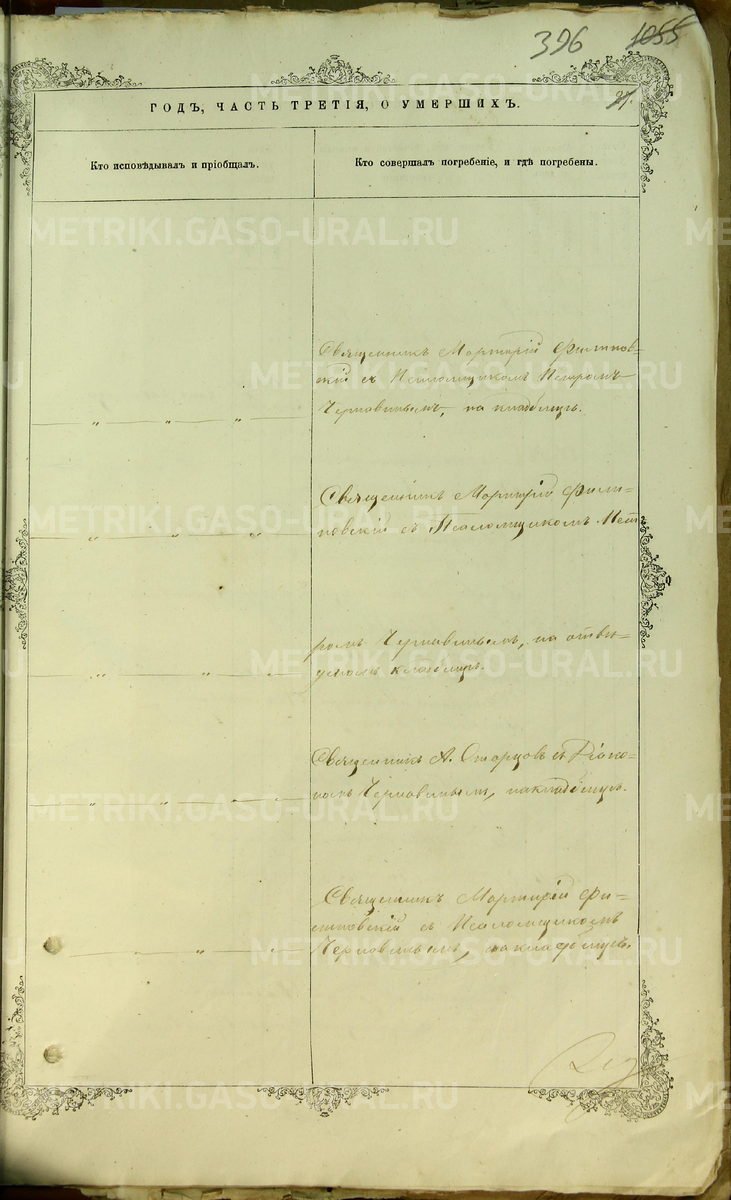 396 1055
METRIKI.GASO-URAL.RU
ГОДЪ, ЧАСТЬ ТРЕТІЯ, О УМЕРШИХЪ.
Кто исповѣдывалъ и пріобщалъ.
Кто совершалъ погребеніе, и гдѣ погребены.
METRIKI.GASO-URAL.RU
Священникъ Мартирій Филипов-
скій съ Псаломщикомъ Петромъ
Черновинымъ, на кладбищѣ.
" " "
Священникъ Мартирій Фили-
повскій съ Псаломщикомъ Пет
" " "
ромъ Черновинымъ, на отве-
кладбищѣ.
" " "
Священникъ А. Старцов съ Діяко-
номъ Черновинымъ, на кладбищѣ.
" " "
Священникъ Мартирій Фи-
липовскій съ Псаломщикомъ
Черновинымъ, на кладбищѣ.
" " "